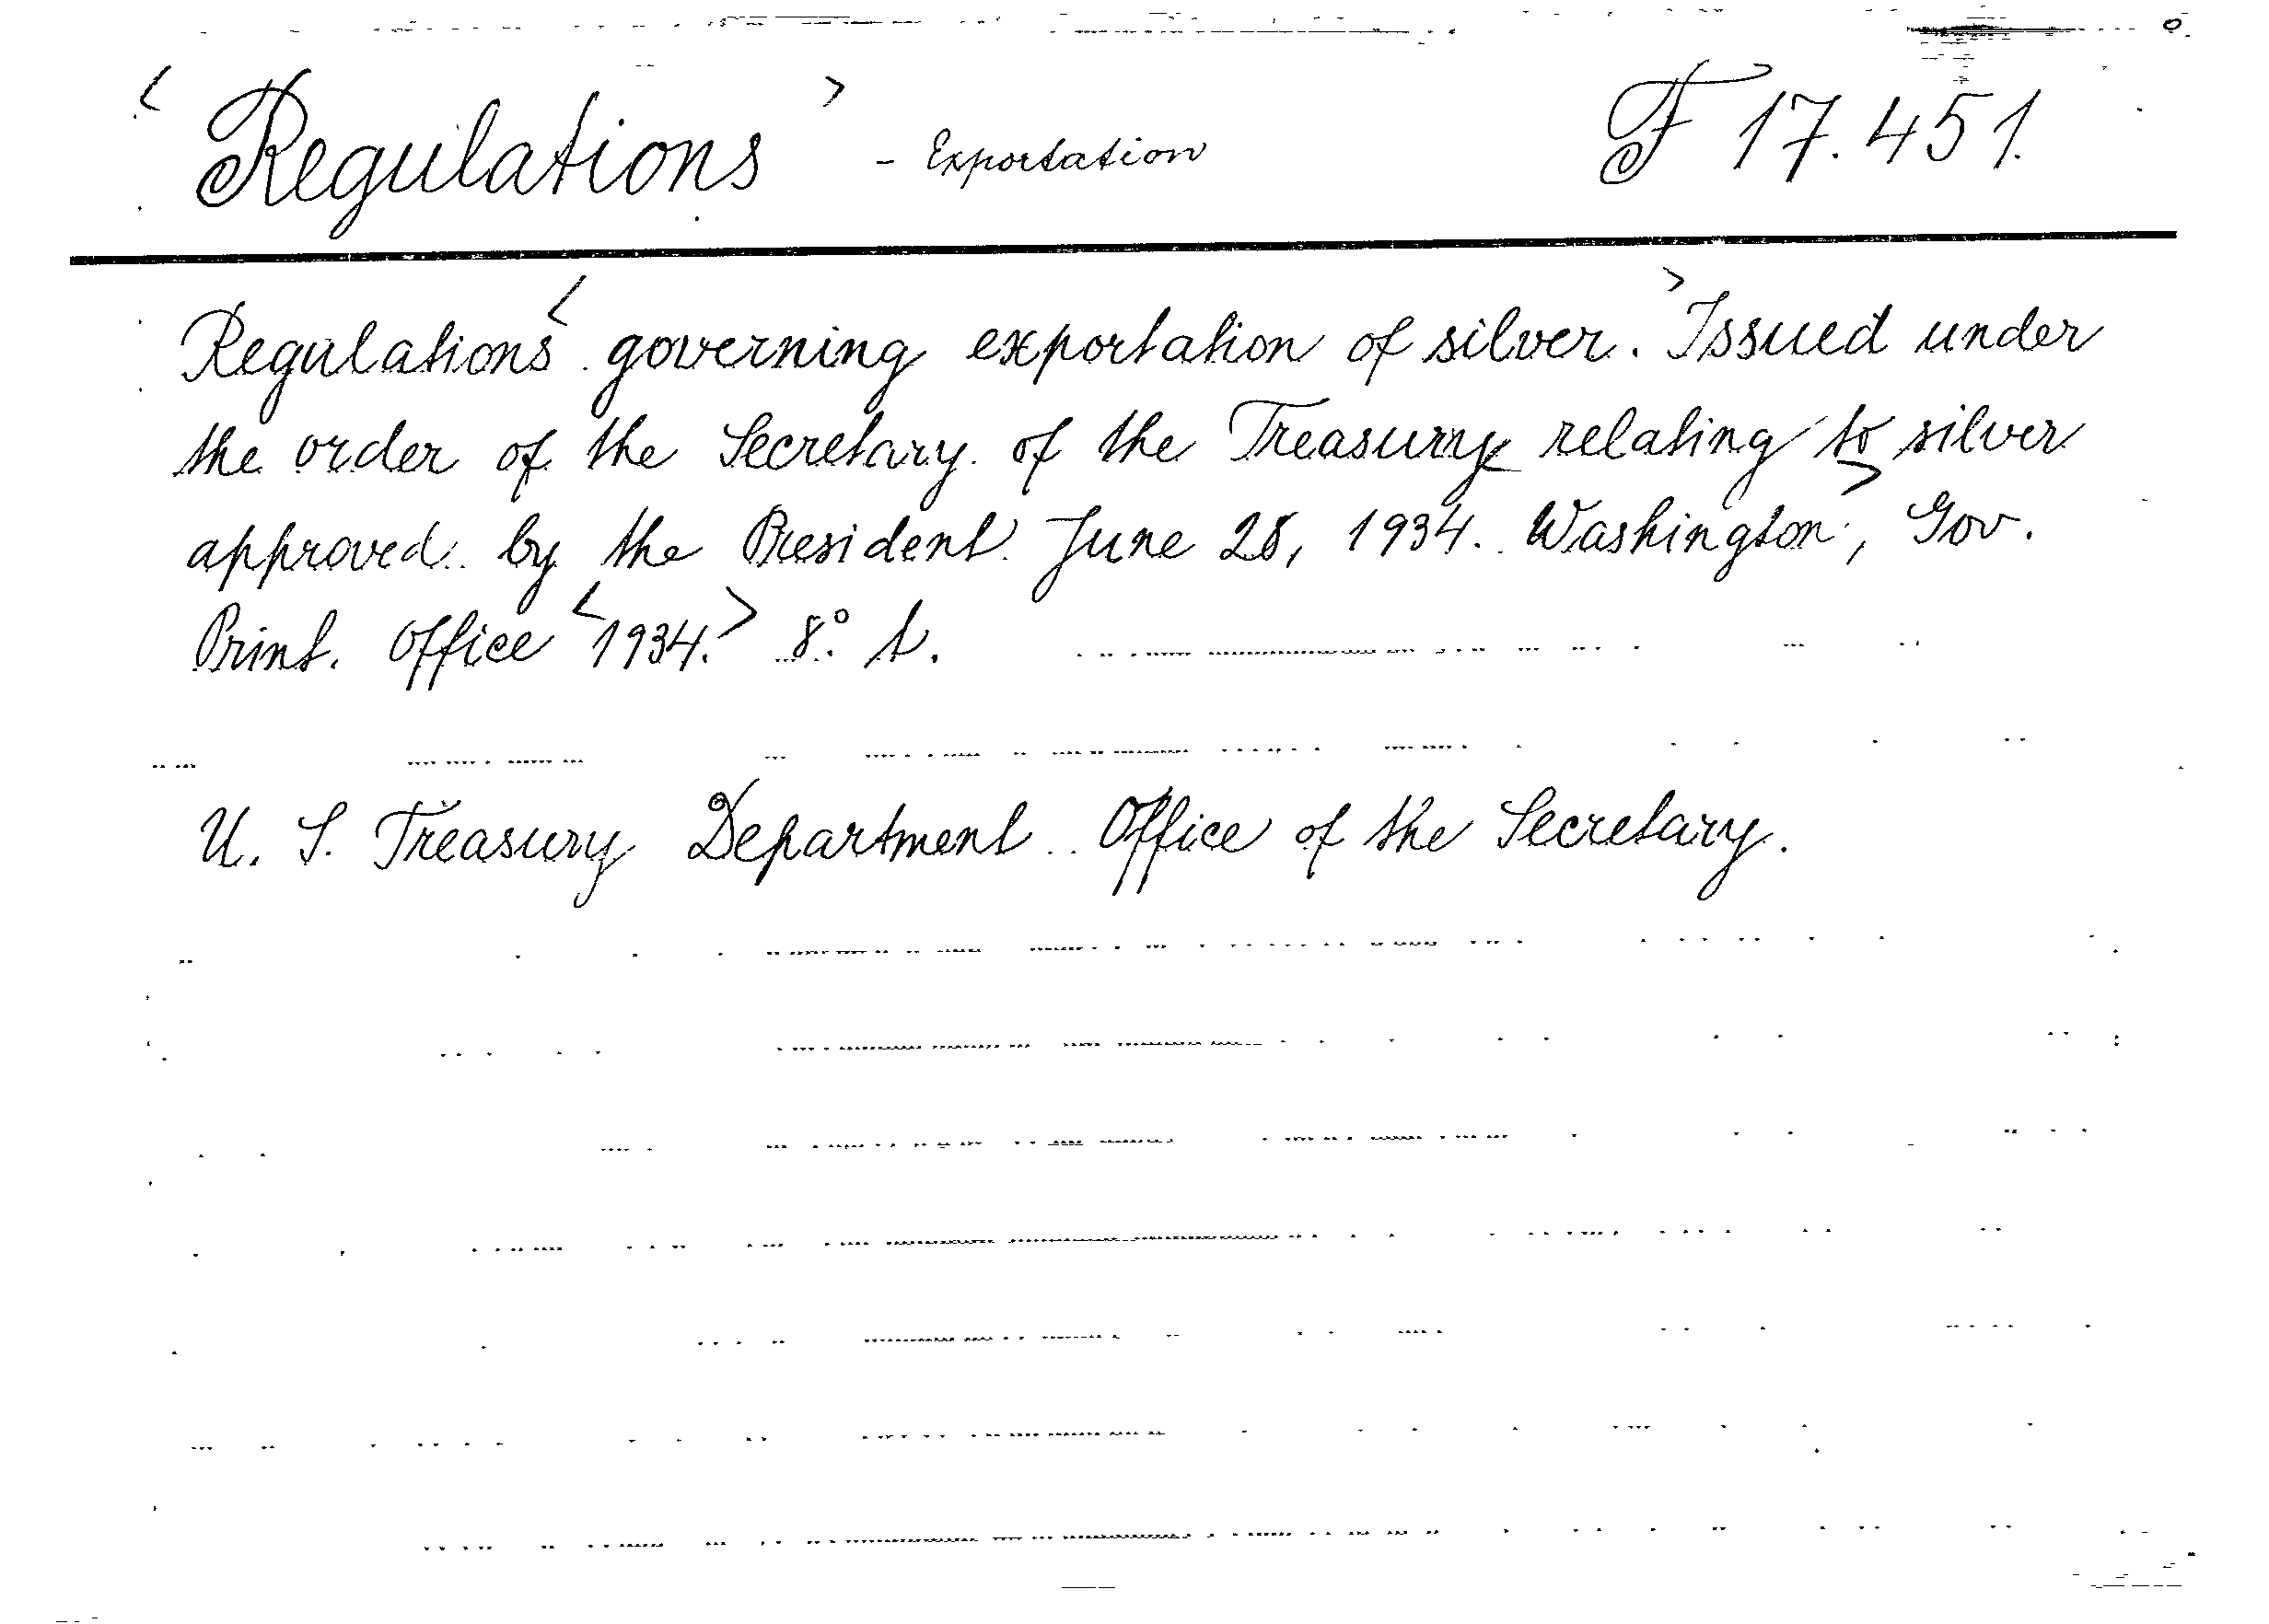 < Regulations > - Exportation F 17.451.
Regulations < governing exportation of silver. > Issued under
the order of the Secretary of the Treasury relating to silver
approved by the President June 28, 1934. Washington >, Gov.
Print. Office < 1934. > 8° t.
U. S. Treasury Department. Office of the Secretary.